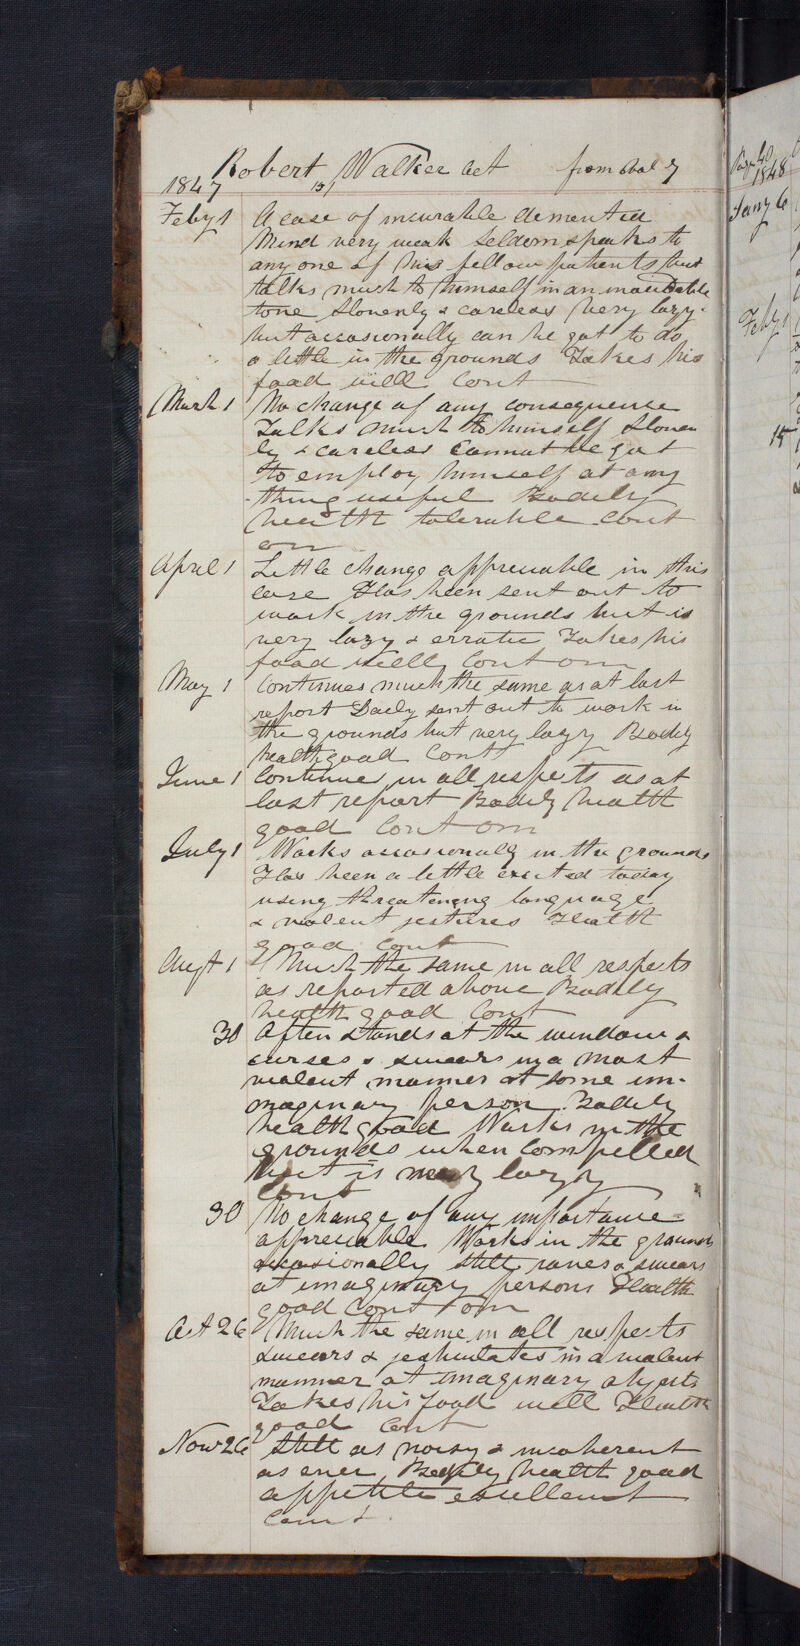 Robert Walker aet from Vol 7
1847 51
Feby 1 A case of incurable demented
Mind very weak Seldom speaks to
any one of his fellow patients but
talks much to himself in an inaudible
tone Slovenly & careless very lazy.
but occasionally can be got to do
a little in the grounds Takes his
food well Cont
March 1 No change of any consequence
Talks much to himself Sloven
ly & careless Cannot be got
to employ himself at any
thing useful Bodily
health tolerable Cont
om
April 1 Little change appreciable in this
case Has been sent out to
work in the grounds but is
very lazy & erratic Takes his
food well Cont om
May 1 Continues much the same as at last
report Daily sent out to work in
the grounds but very lazy Bodily
health good Cont
June 1 Continues in all respects as at
last report Bodily health
good Cont om
July 1 Works occasionally in the grounds
Has been a little excited today
using threatening language
& violent jestures Health
good Cont
Augt 1 Much the same in all respects
as reported above Bodily
health good Cont
30 Often stands at the window &
curses & swears in a most
violent manner at some im-
maginary person Bodily
health good Works in the
grounds when compelled
but is very lazy
Cont
30 No change of any importance
appreciable Works in the grounds
occasionally still raves & swears
at imaginary persons Health
good Cont om
Oct 26 Much the same in all respects
swears & jesticulates in a violent
manner at imaginary objects
Takes his food well Health
good Cont
Nov 26 Still as noisy & incoherent
as ever Bodily health good
appetite excellent
Cont
Page 40
1848
Jany 6
Feby 1
15